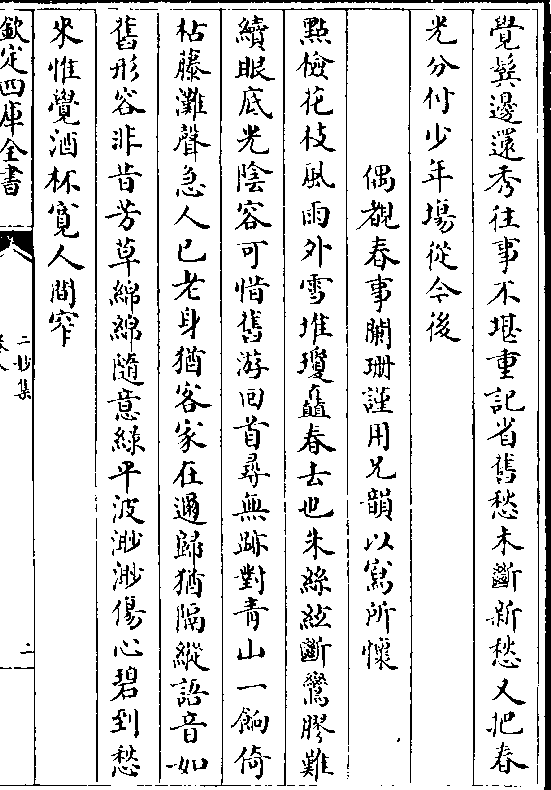 覺鬂邊還秀往事不堪重記省舊愁未斷新愁又把春
光分付少年場從今後
偶觀春事闌珊謹用兄韻以寫所懷
點檢花枝風雨外雪堆瓊矗春去也朱絲絃斷鸞膠難
續眼底光陰容可惜舊游回首尋無跡對青山一餉倚
枯藤灘聲急人已老身猶客家在邇歸猶隔縱語音如
舊形容非昔芳草綿綿隨意緑平波渺渺傷心碧到愁
來惟覺酒杯寛人間窄
欽定四庫全書
二妙集
卷八
二